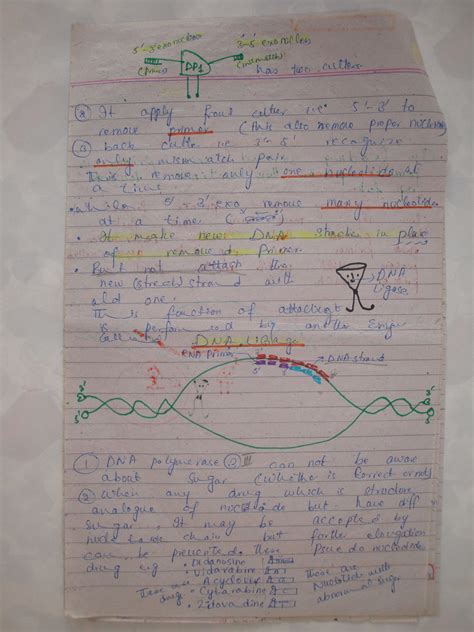 5'-3' exonuclease
3'-5' exonuclease
(Primer)
DP1
(mismatch)
has two cutters
② It apply front cutter i.e 5'-3' to
remove primer (this also remove proper nucleotide)
③ back cutter i.e 3'-5' recognize
only mismatch repair
This remove only one nucleotide at
a time
while 5'-3' exo remove many nucleotides
at a time
• It make new DNA in place
of removed Primer
• But not attach the
new strand with
old one.
DNA
Ligase
function of attaching
is perform by another Enzyme
DNA Ligase
RNA Primer
DNA strand
3'
5'
3'
5'
① DNA polymerase III can not be aware
about sugar (Whether is correct or not)
② When any drug which is structure
analogue of nucleotide but have diff
sugar. It may be accepted by
chain but further elongation
can be prevented. Pseudo nucleotide
drug e.g • Didanosine
• Vidarabine
These are
• Acyclovir
Nucleotide with
drug • Cytarabine
abnormal sugar
• Zidovudine